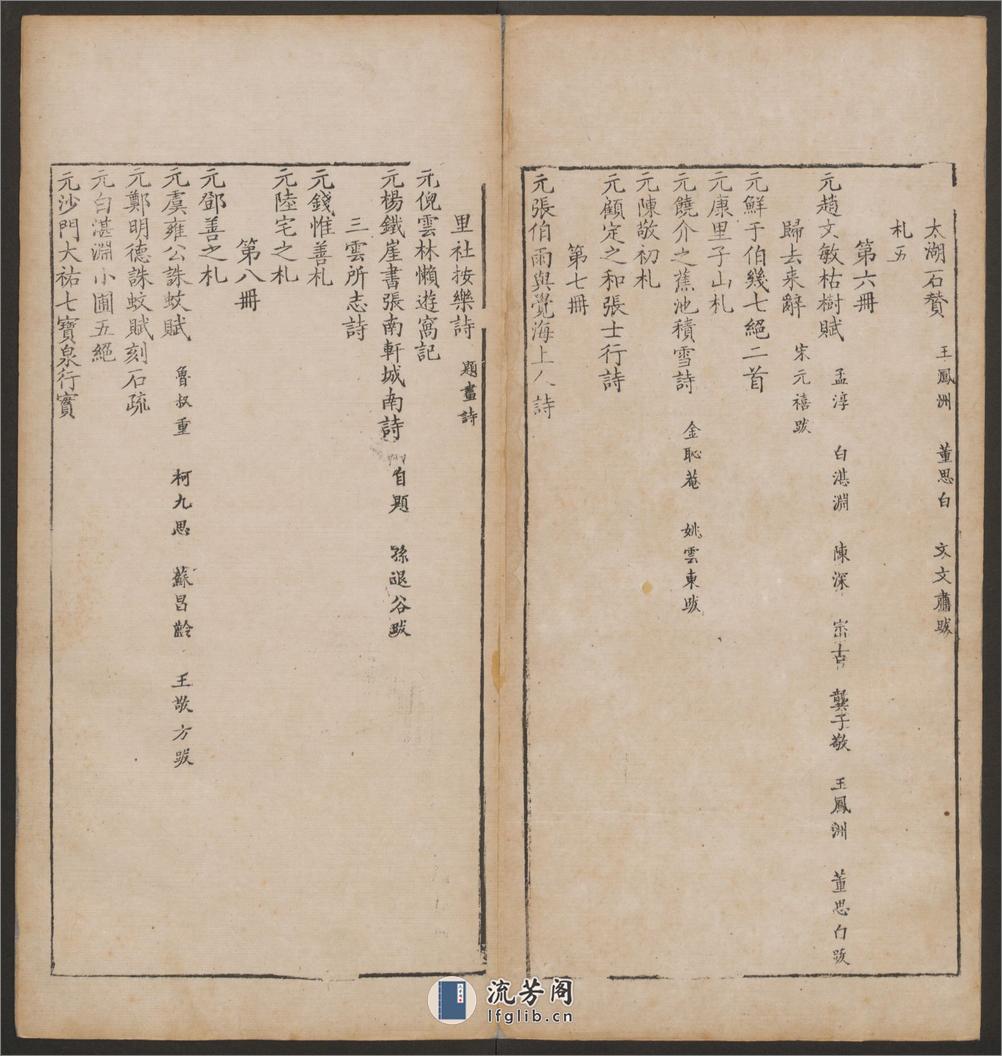 太湖石贊 王鳳洲 董思白 文文肅跋
札五
第六冊
元趙文敏枯樹賦 孟淳 白湛淵 陳深 宻古 龔子敬 王鳳洲 董思白跋
歸去来辭 宋元禧跋
元鮮于伯幾七絕二首
元康里子山札
元饒介之蕉池積雪詩 金恥菴 姚雲東跋
元陳敬初札
元顧定之和張士行詩
第七冊
元張伯雨與覺海上人詩
里社按樂詩 題畫詩
元倪雲林懶遊窩記
元楊鐵崖書張南軒城南詩 自題 孫退谷跋
三雲所志詩
元錢惟善札
元陸宅之札
第八冊
元鄧善之札
元虞雍公誅蚊賦 魯叔重 柯九思 蘇昌齡 王敬方跋
元鄭明德誅蚊賦刻石疏
元白湛淵小圃五絕
元沙門大祐七寶泉行實
流芳阁
lfglib.cn